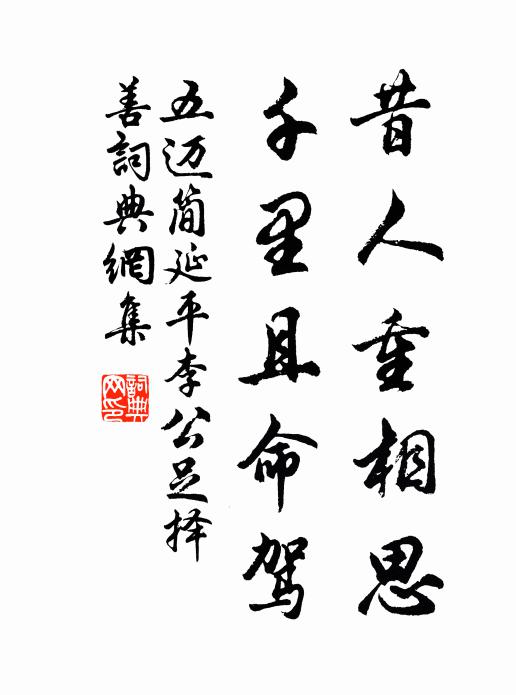 昔人重相思
千里且命驾
五迈简延平李公足择
善词典網集
詞典网印